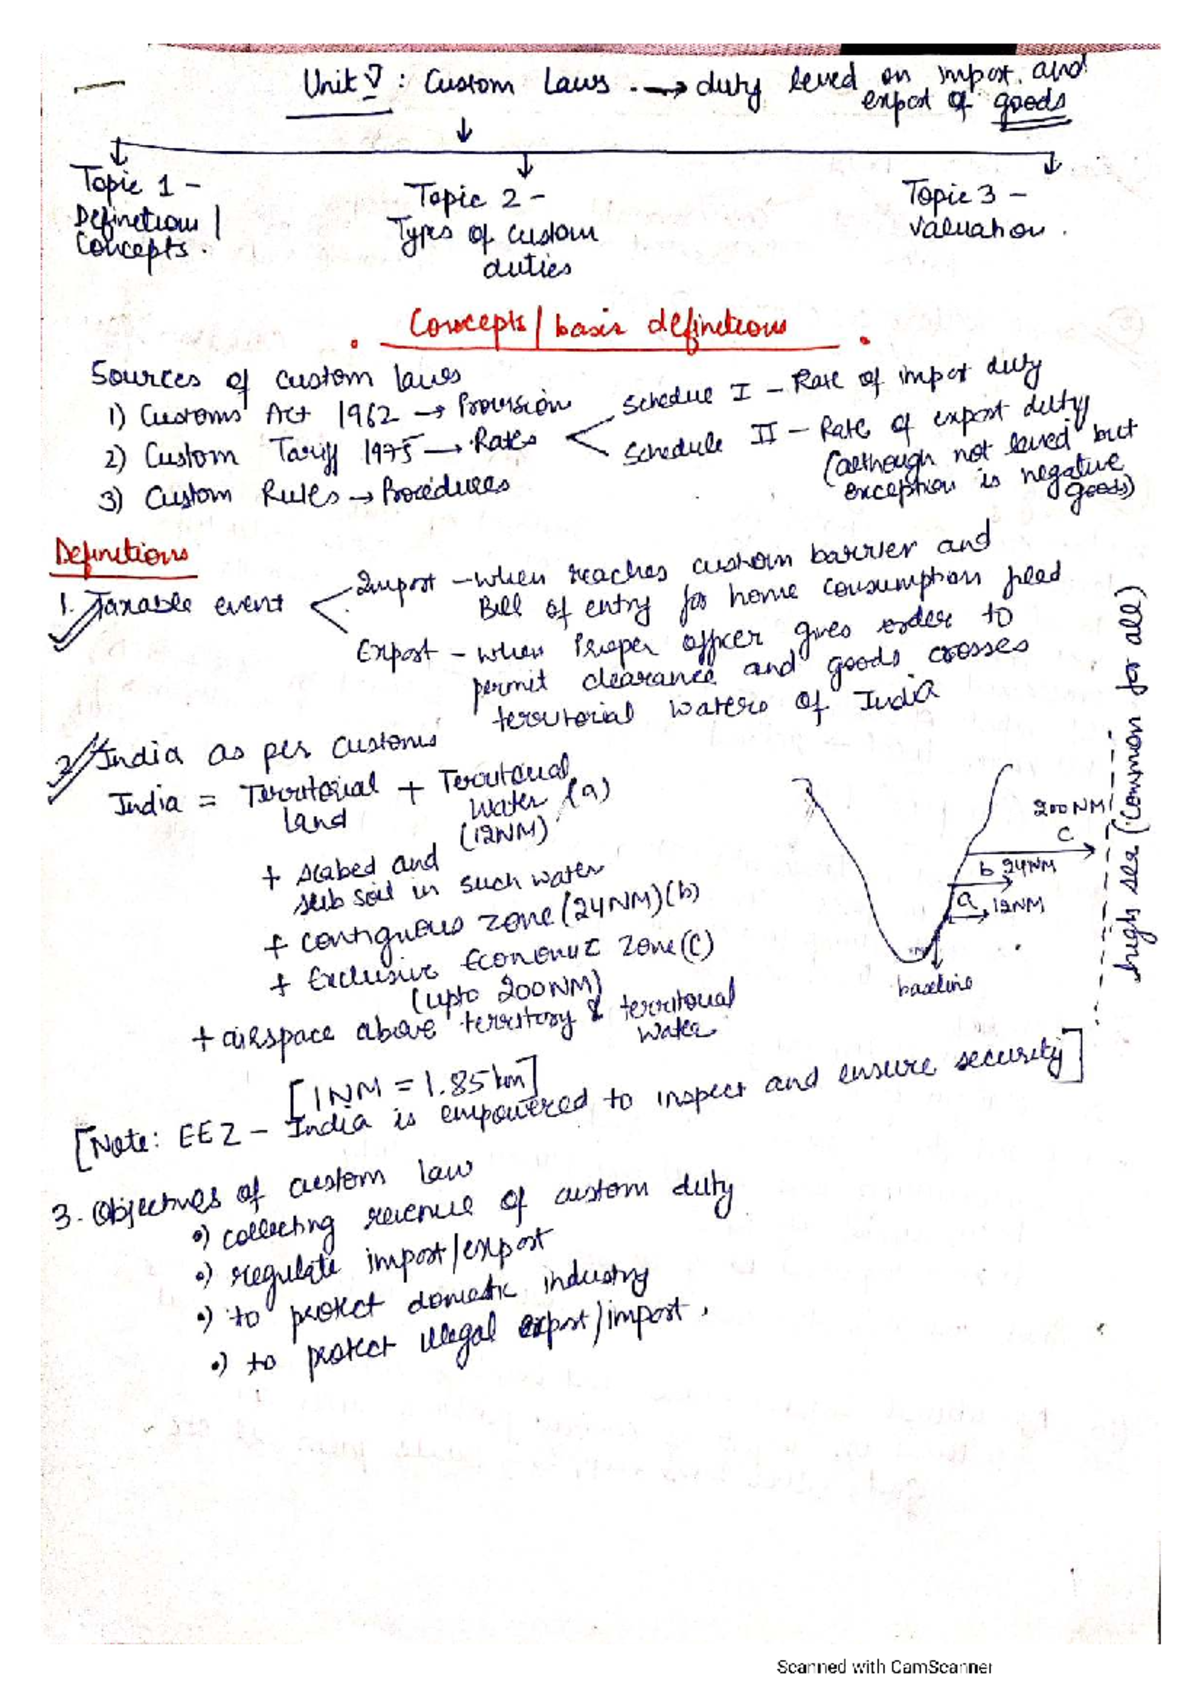 Unit V : Custom Laws → duty levied on import and
export of goods
Topic 1 -
Definitions/
Concepts.
Topic 2 -
Types of custom
duties
Topic 3 -
Valuation.
Concepts/basic definitions
Sources of custom laws
1) Customs Act 1962 → Provision
2) Custom Tariff 1975 → Rates
Schedule I - Rate of import duty
Schedule II - Rate of export duty
(although not levied but
exception is negative
goods)
3) Custom Rules → Procedures
Definitions
1. Taxable event
Import - when reaches custom barrier and
Bill of entry for home consumption filed
Export - when Proper officer gives order to
permit clearance and goods crosses
territorial waters of India
2. India as per customs
India = Territorial + Territorial
land water (a)
(12NM)
+ seabed and
sub soil in such water
+ contiguous zone (24NM)(b)
+ Exclusive Economic Zone (C)
(upto 200NM)
+ airspace above territory & territorial
water
200 NM
C
b 24NM
a 12NM
baseline
high sea (common for all)
[1NM = 1.85km]
[Note: EEZ - India is empowered to inspect and ensure security]
3. Objectives of custom law
•) collecting revenue of custom duty
•) regulate import/export
•) to protect domestic industry
•) to protect illegal export/import.
Scanned with CamScanner